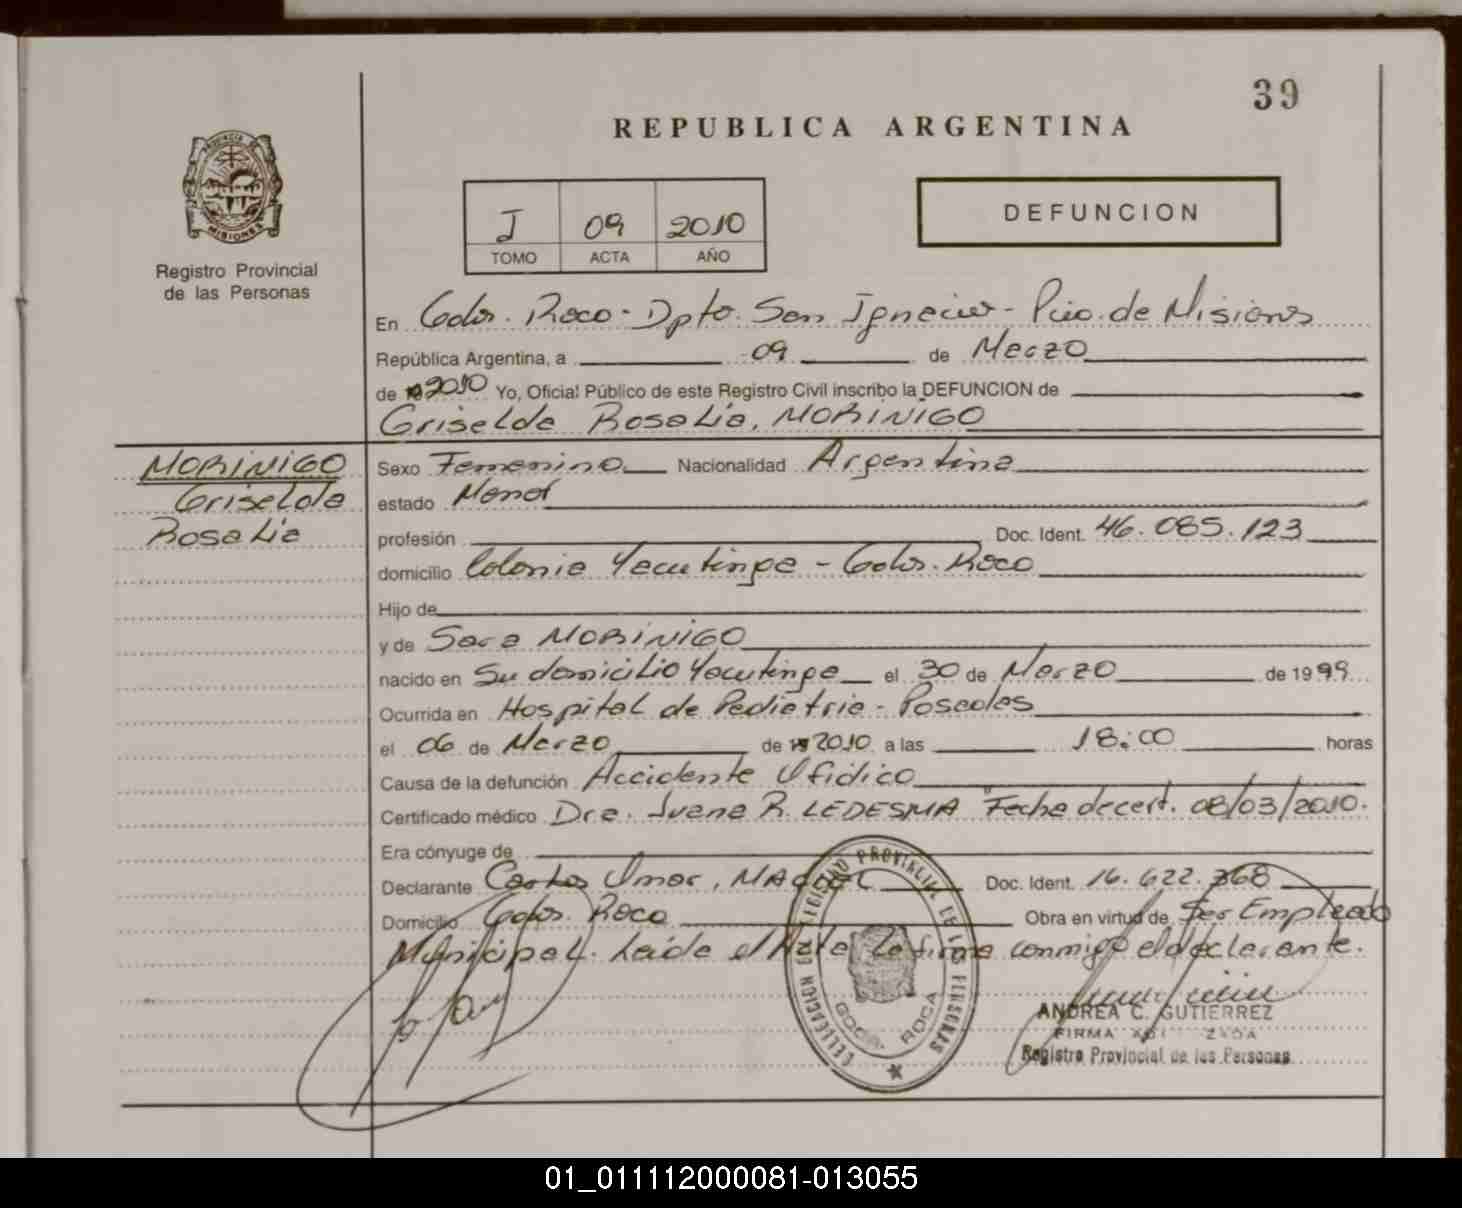 39
REPUBLICA ARGENTINA
PROVINCIA DE MISIONES
Registro Provincial
de las Personas
I 09 2010
TOMO ACTA AÑO
DEFUNCION
En Gdor. Roca - Dpto. San Ignacio - Pcia. de Misiones
República Argentina, a 09 de Marzo
de 2010 Yo, Oficial Público de este Registro Civil inscribo la DEFUNCION de
Griselda Rosalia, MORINIGO
MORINIGO
Griselda
Rosalia
Sexo Femenino Nacionalidad Argentina
estado Menor
profesión Doc. Ident. 46.085.123
domicilio Colonia Yacutinga - Gdor. Roca
Hijo de
y de Sara MORINIGO
nacido en Su domicilio Yacutinga el 30 de Marzo de 1999
Ocurrida en Hospital de Pediatria - Posadas
el 06 de Marzo de 2010 a las 18:00 horas
Causa de la defunción Accidente Ofidico
Certificado médico Dra. Juana R. LEDESMA Fecha de cert. 08/03/2010.
Era cónyuge de
Declarante Carlos Omar, Doc. Ident. 16.622.368
Domicilio Gdor. Roca Obra en virtud de Ser Empleado
Municipal. Leida el Acta la firma conmigo el declarante.
DELEGACION DEL REGISTRO PROVINCIAL DE LAS PERSONAS
GDOR. ROCA
ANDREA C. GUTIERREZ
FIRMA
Registro Provincial de las Personas
01_011112000081-013055